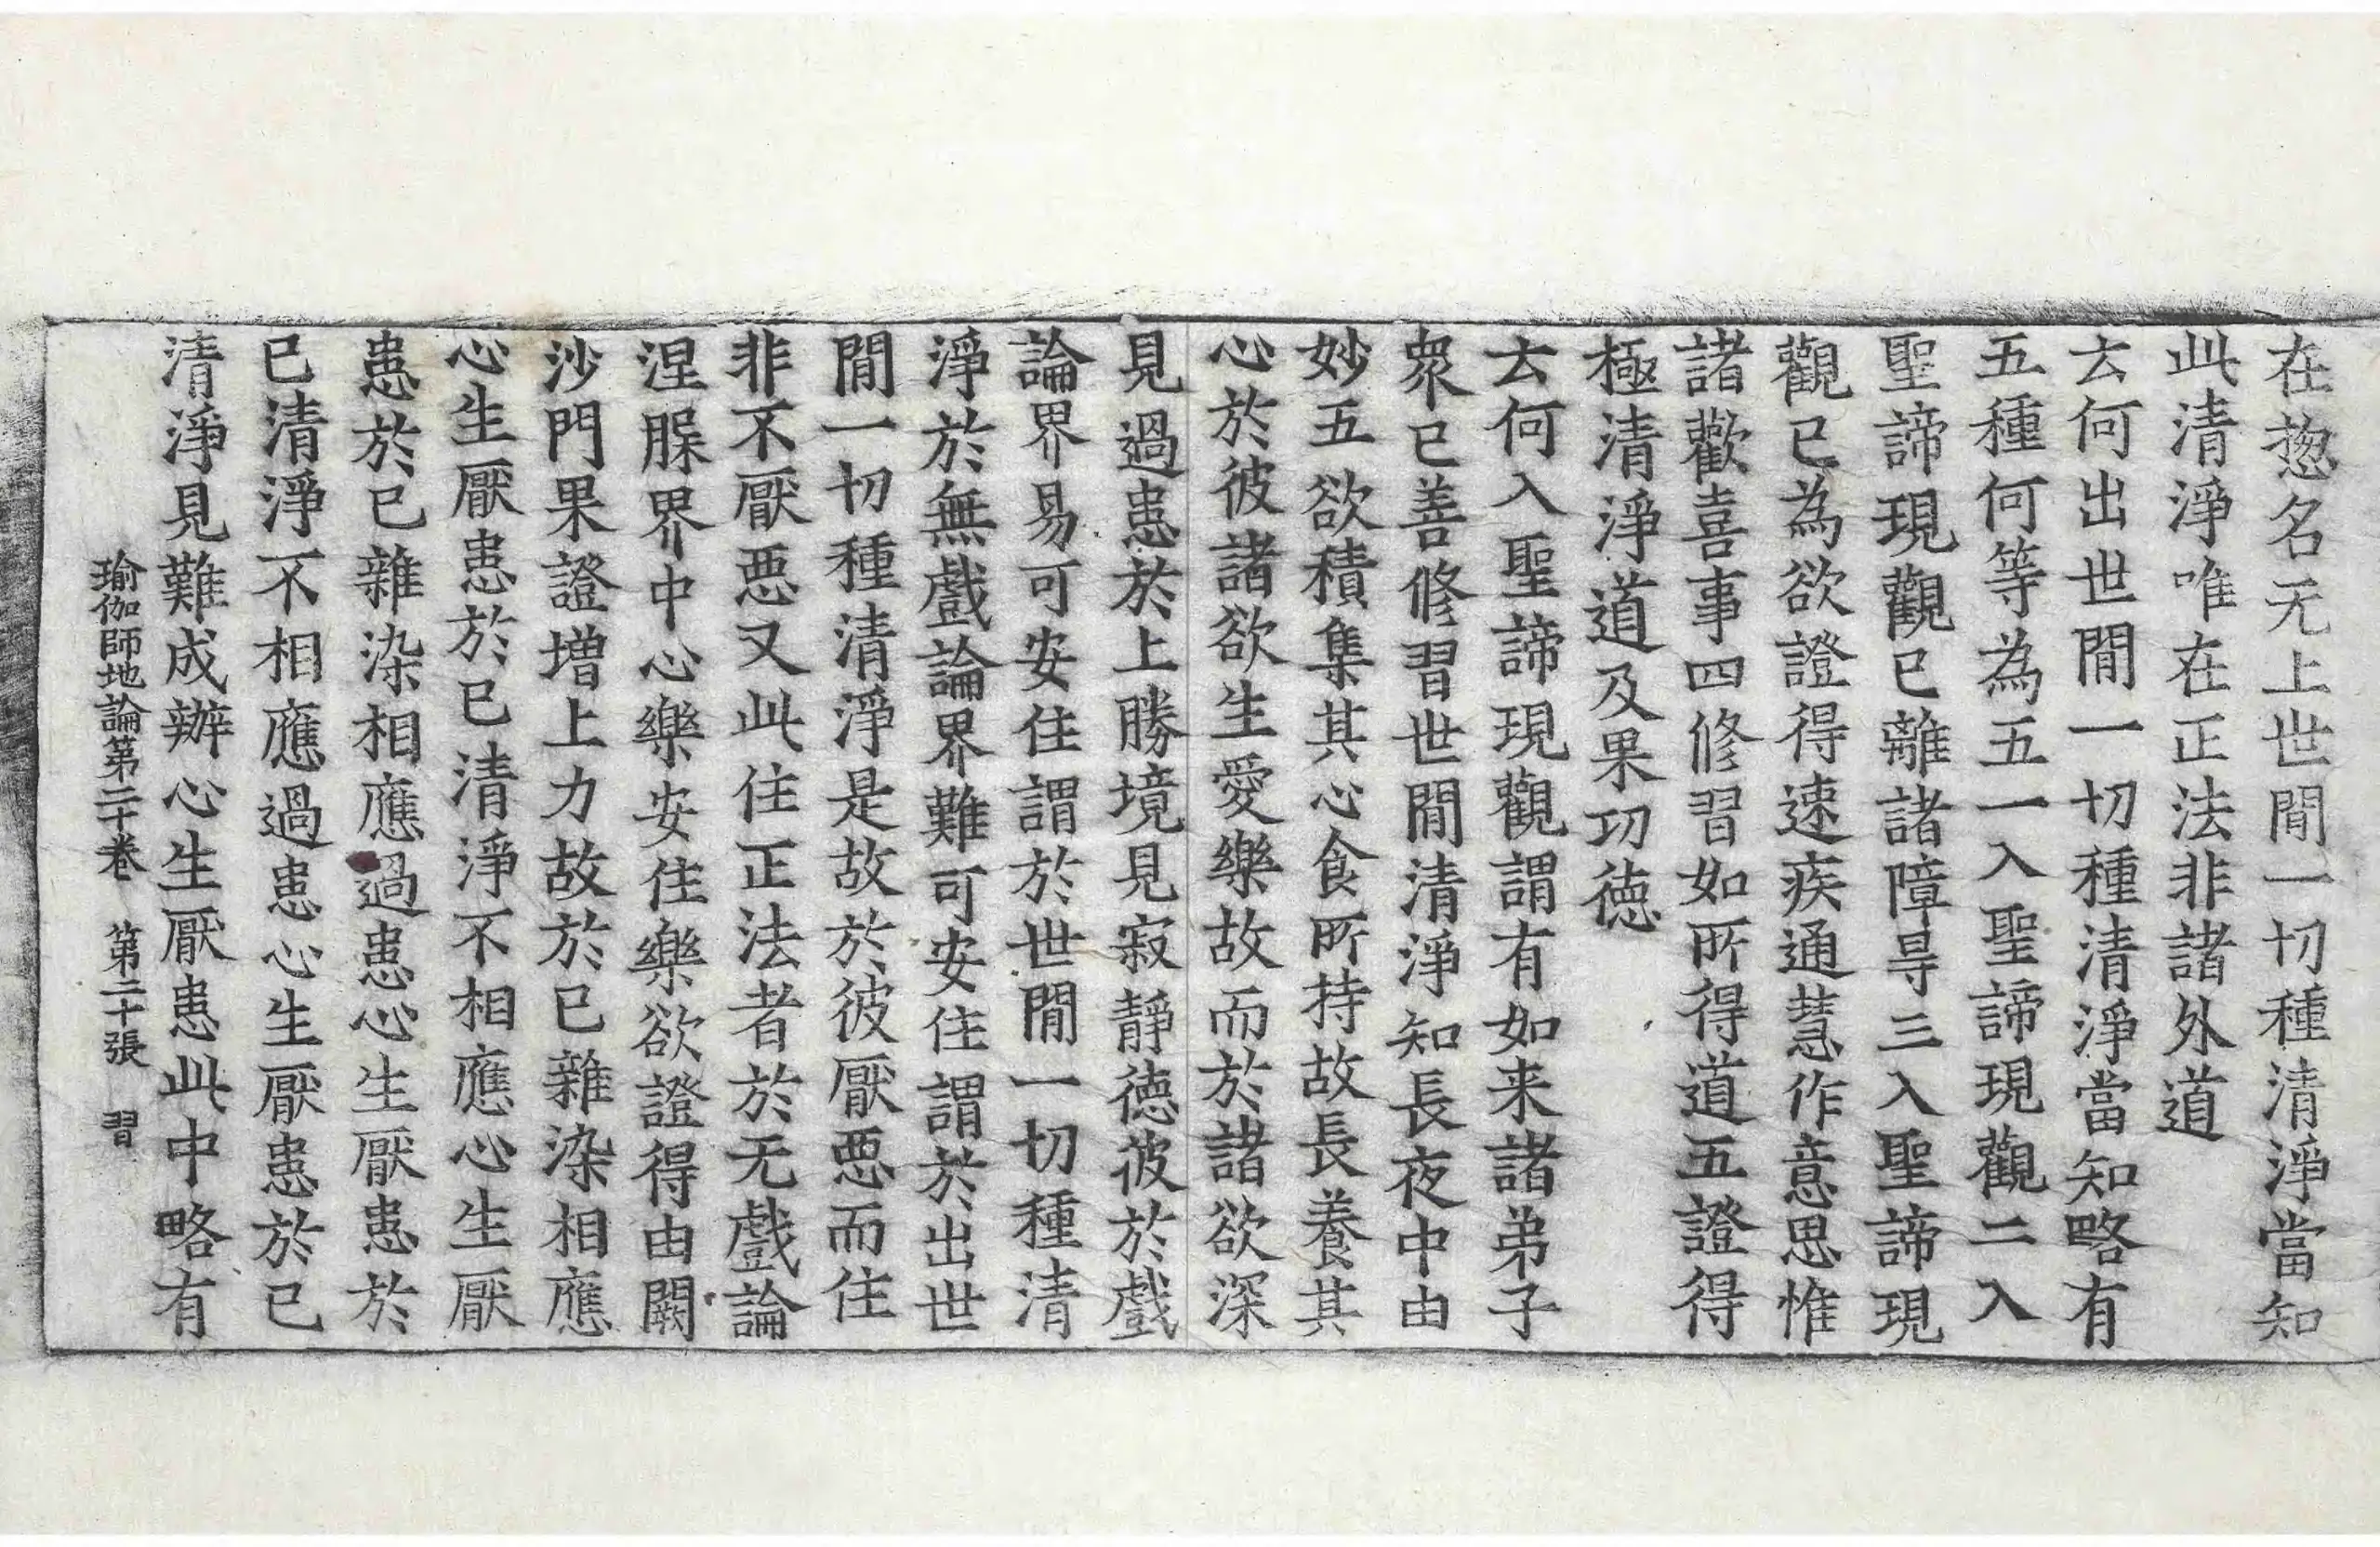 在惣名无上世閒一切種清淨當知
此清淨唯在正法非諸外道
云何出世閒一切種清淨當知略有
五種何等為五一入聖諦現觀二入
聖諦現觀已離諸障㝵三入聖諦現
觀已為欲證得速疾通慧作意思惟
諸歡喜事四修習如所得道五證得
極清淨道及果功德
云何入聖諦現觀謂有如来諸弟子
衆已善修習世閒清淨知長夜中由
妙五欲積集其心食所持故長養其
心於彼諸欲生愛樂故而於諸欲深
見過患於上勝境見寂靜德彼於戲
論界易可安住謂於世閒一切種清
淨於無戲論界難可安住謂於出世
閒一切種清淨是故於彼厭惡而住
非不厭惡又此住正法者於无戲論
涅槃界中心樂安住樂欲證得由闕
沙門果證增上力故於已雜染相應
心生厭患於已清淨不相應心生厭
患於已雜染相應過患心生厭患於
已清淨不相應過患心生厭患於已
清淨見難成辦心生厭患此中略有
瑜伽師地論第二十卷　第二十張　習